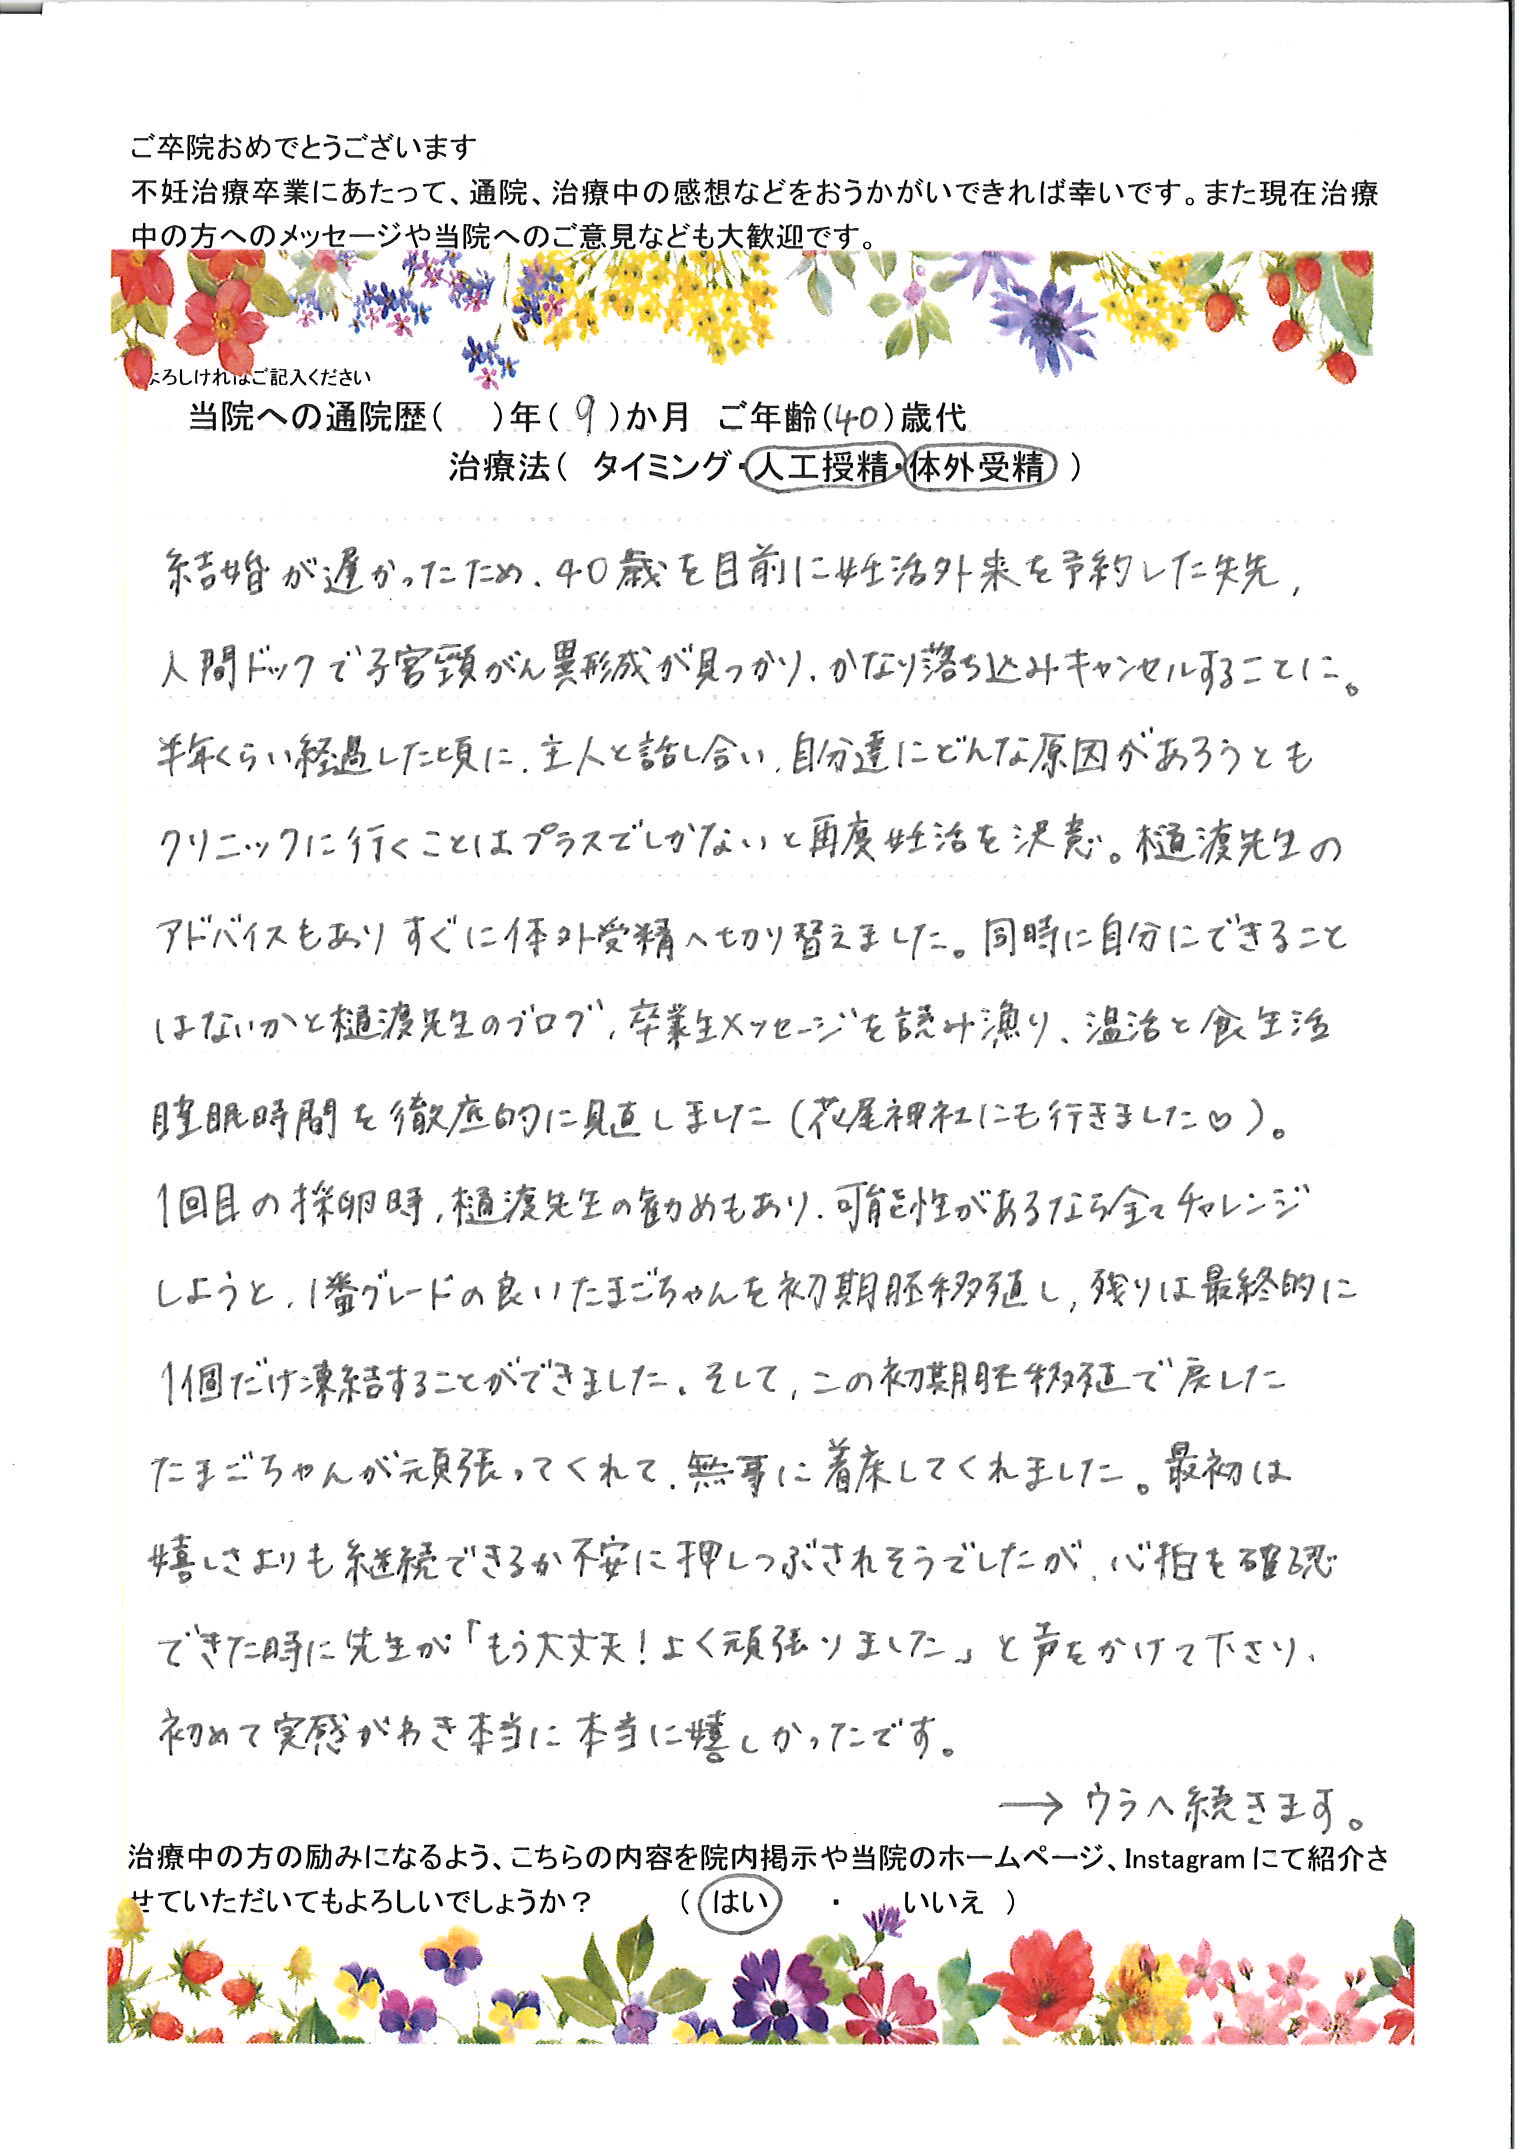 ご卒院おめでとうございます
不妊治療卒業にあたって、通院、治療中の感想などをおうかがいできれば幸いです。また現在治療
中の方へのメッセージや当院へのご意見なども大歓迎です。
よろしければご記入ください
当院への通院歴( )年(9)か月 ご年齢(40)歳代
治療法( タイミング・人工授精・体外受精 )
結婚が遅かったため、40歳を目前に妊活外来を予約した矢先、
人間ドックで子宮頸がん異形成が見つかり、かなり落ち込みキャンセルすることに。
半年くらい経過した頃に、主人と話し合い、自分達にどんな原因があろうとも
クリニックに行くことはプラスでしかないと再度妊活を決意。樋渡先生の
アドバイスもあり すぐに体外受精へ切り替えました。同時に自分にできること
はないかと樋渡先生のブログ、卒業生メッセージを読み漁り、温活と食生活
睡眠時間を徹底的に見直しました(花尾神社にも行きました♡)。
1回目の採卵時、樋渡先生の勧めもあり、可能性があるなら全てチャレンジ
しようと、1番グレードの良いたまごちゃんを初期胚移殖し、残りは最終的に
1個だけ凍結することができました。そして、この初期胚移殖で戻した
たまごちゃんが頑張ってくれて、無事に着床してくれました。最初は
嬉しさよりも継続できるか不安に押しつぶされそうでしたが、心拍を確認
できた時に先生が「もう大丈夫!よく頑張りました」と声をかけて下さり、
初めて実感がわき本当に本当に嬉しかったです。
→ ウラへ続きます。
治療中の方の励みになるよう、こちらの内容を院内掲示や当院のホームページ、Instagramにて紹介さ
せていただいてもよろしいでしょうか? ( はい ・ いいえ )